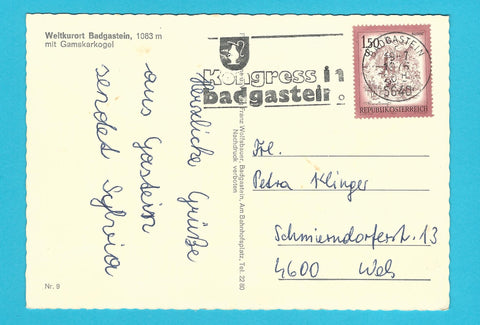 Weltkurort Badgastein, 1083 m
mit Gamskarkogel
herzliche Grüße
aus Gastein
sendet Sylvia
Nr. 9
Franz Wolfsbauer, Badgastein, Am Bahnhofsplatz, Tel. 22 80
Nachdruck verboten
Kongress in
Badgastein
1.50
REPUBLIK ÖSTERREICH
BADGASTEIN
5640
Frl.
Petra Klinger
Schmierndorferstr. 13
4600 Wels